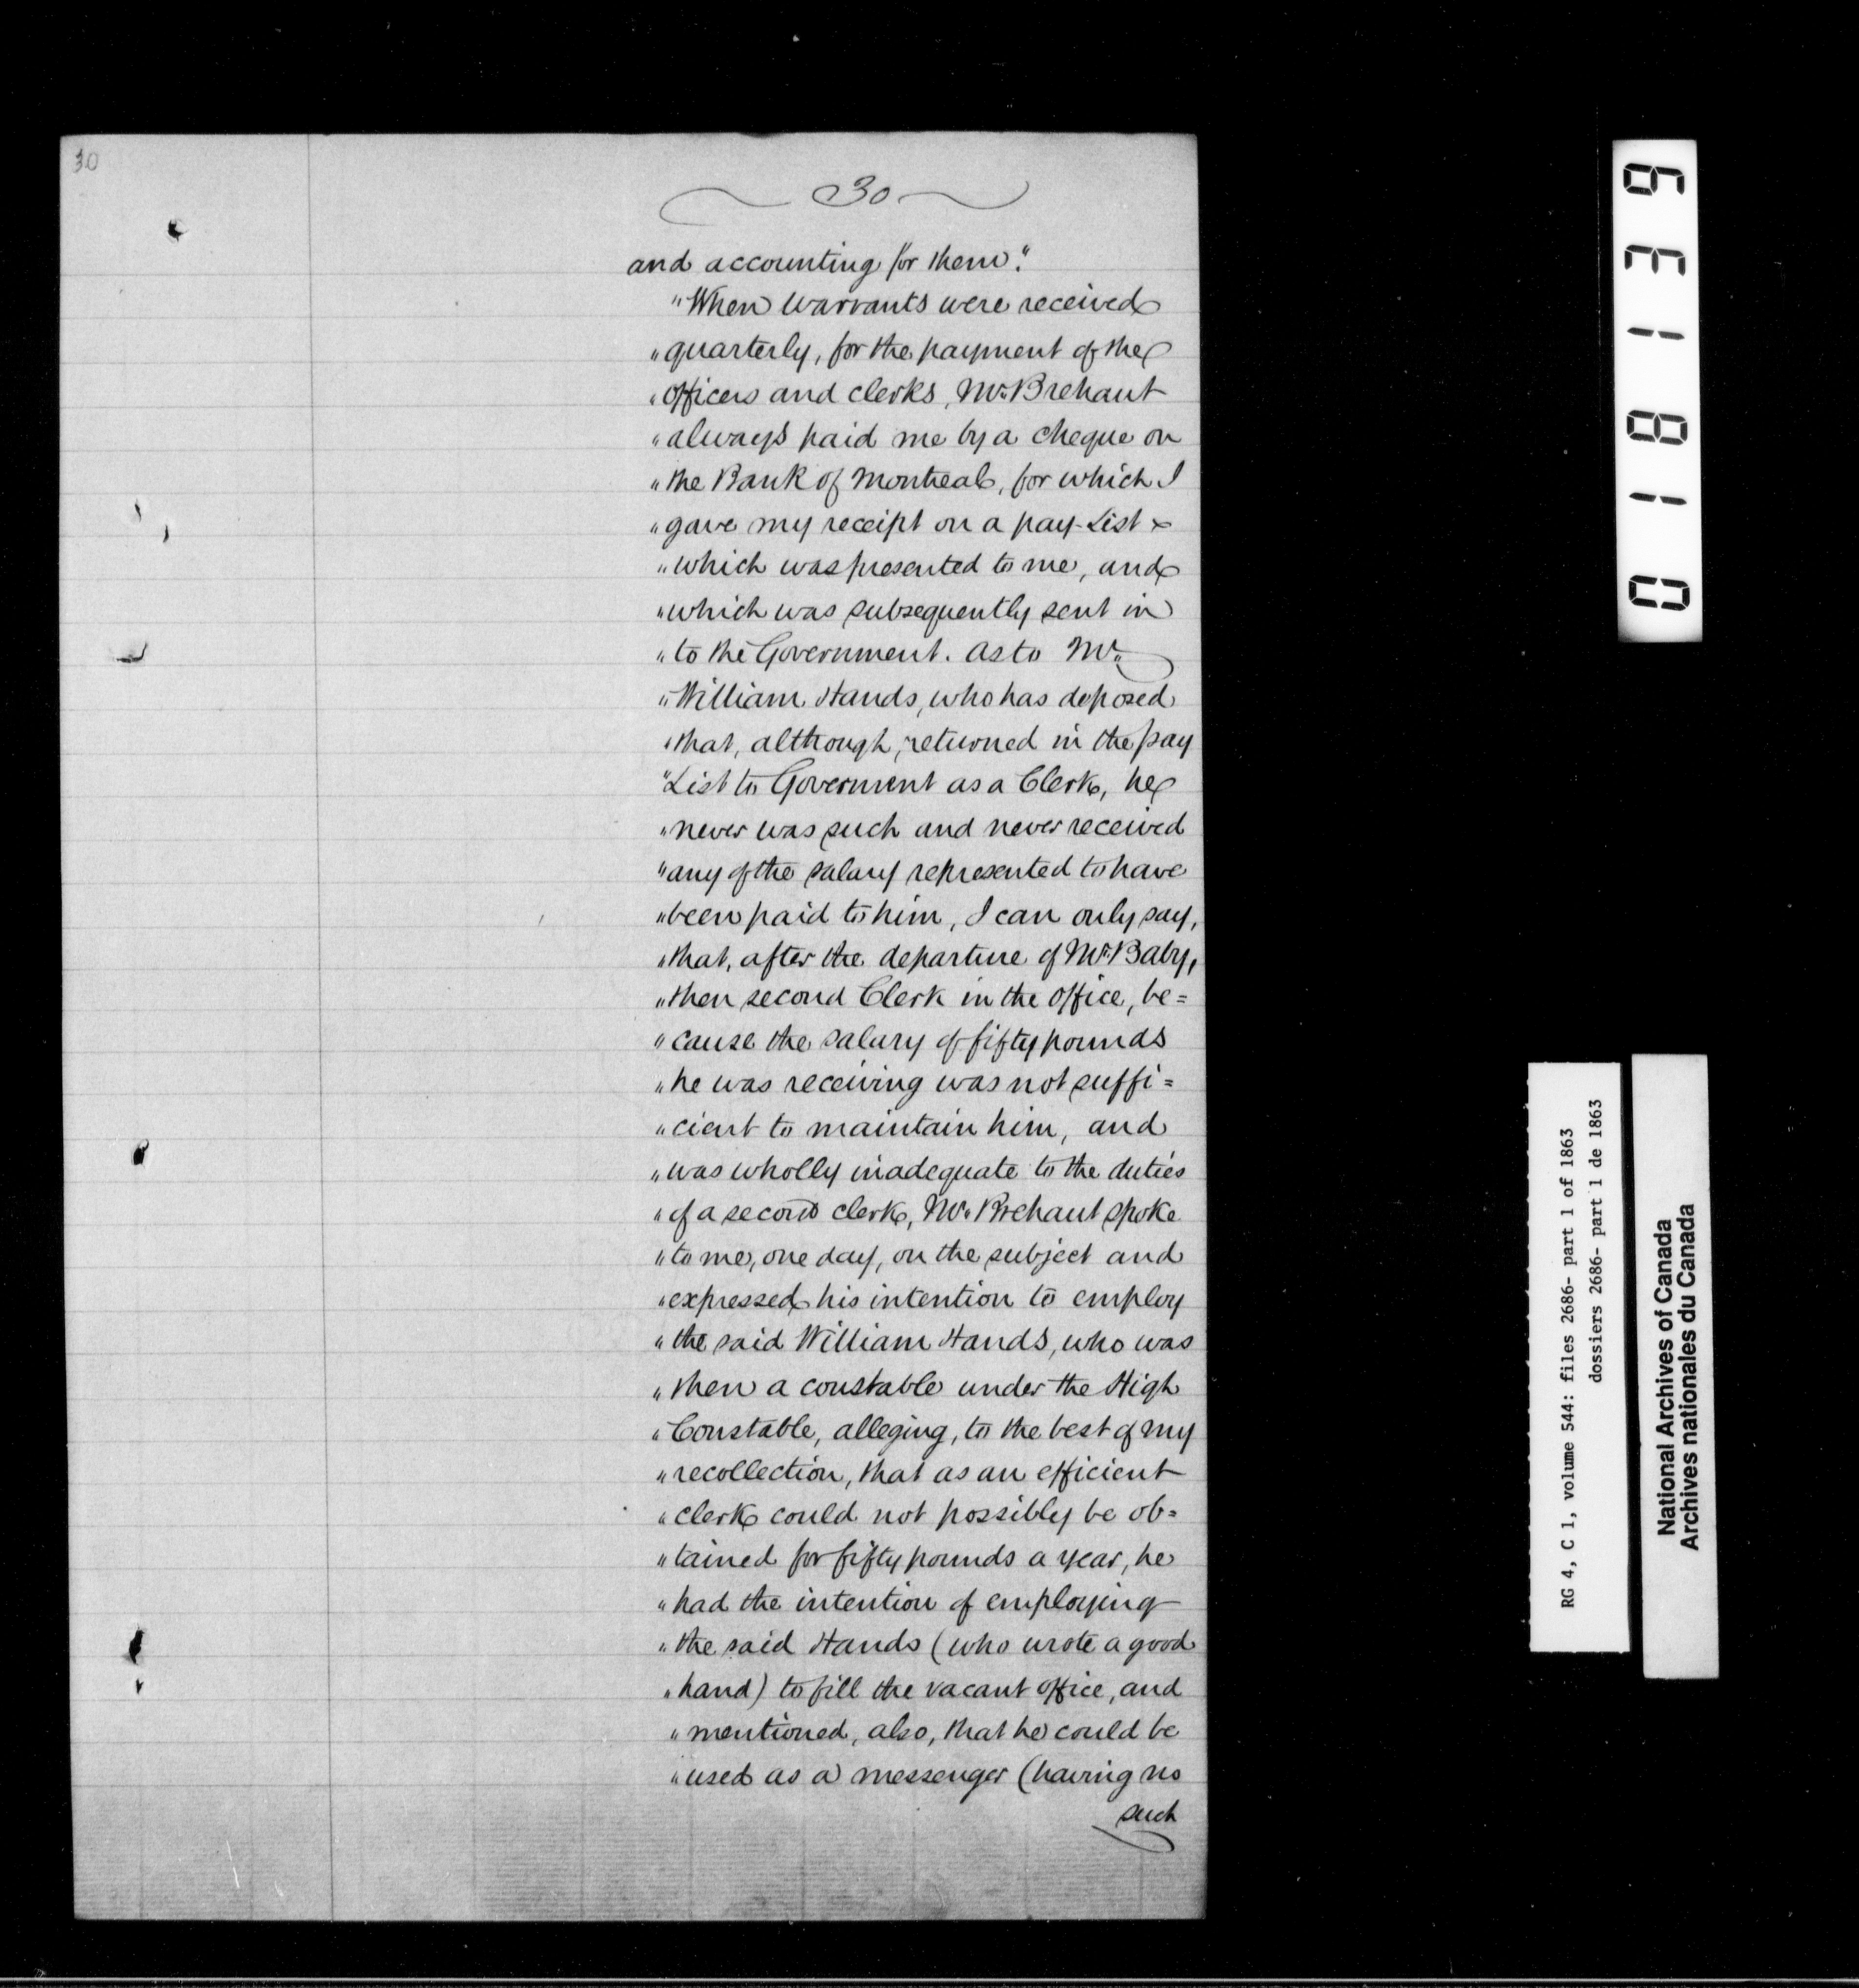 30
30
and accounting for them."
"When warrants were received
"quarterly, for the payment of the
"officers and clerks, Mr. Brehaut
"always paid me by a cheque on
"the Bank of Montreal, for which I
"gave my receipt on a pay-List
"which was presented to me, and
"which was subsequently sent in
"to the Government. As to Mr.
"William Hands, who has deposed
"that, although, returned in the pay
"List to Goverment as a Clerk, he
"never was such and never received
"any of the salary represented to have
"been paid to him, I can only say,
"that, after the departure of Mr. Baby,
"then second Clerk in the office, be=
"cause the salary of fifty pounds
"he was receiving was not suffi=
"cient to maintain him, and
"was wholly inadequate to the duties
"of a second clerk, Mr. Brehaut spoke
"to me, one day, on the subject and
"expressed his intention to employ
"the said William Hands, who was
"then a constable under the High
"Constable, alleging, to the best of my
"recollection, that as an efficient
"clerk could not possibly be ob=
"tained for fifty pounds a year, he
"had the intention of employing
"the said Hands (who wrote a good
"hand) to fill the vacant office, and
"mentioned, also, that he could be
"used as a messenger (having no
such
018139
RG 4, C 1, volume 544: files 2686- part 1 of 1863
dossiers 2686- part 1 de 1863
National Archives of Canada
Archives nationales du Canada